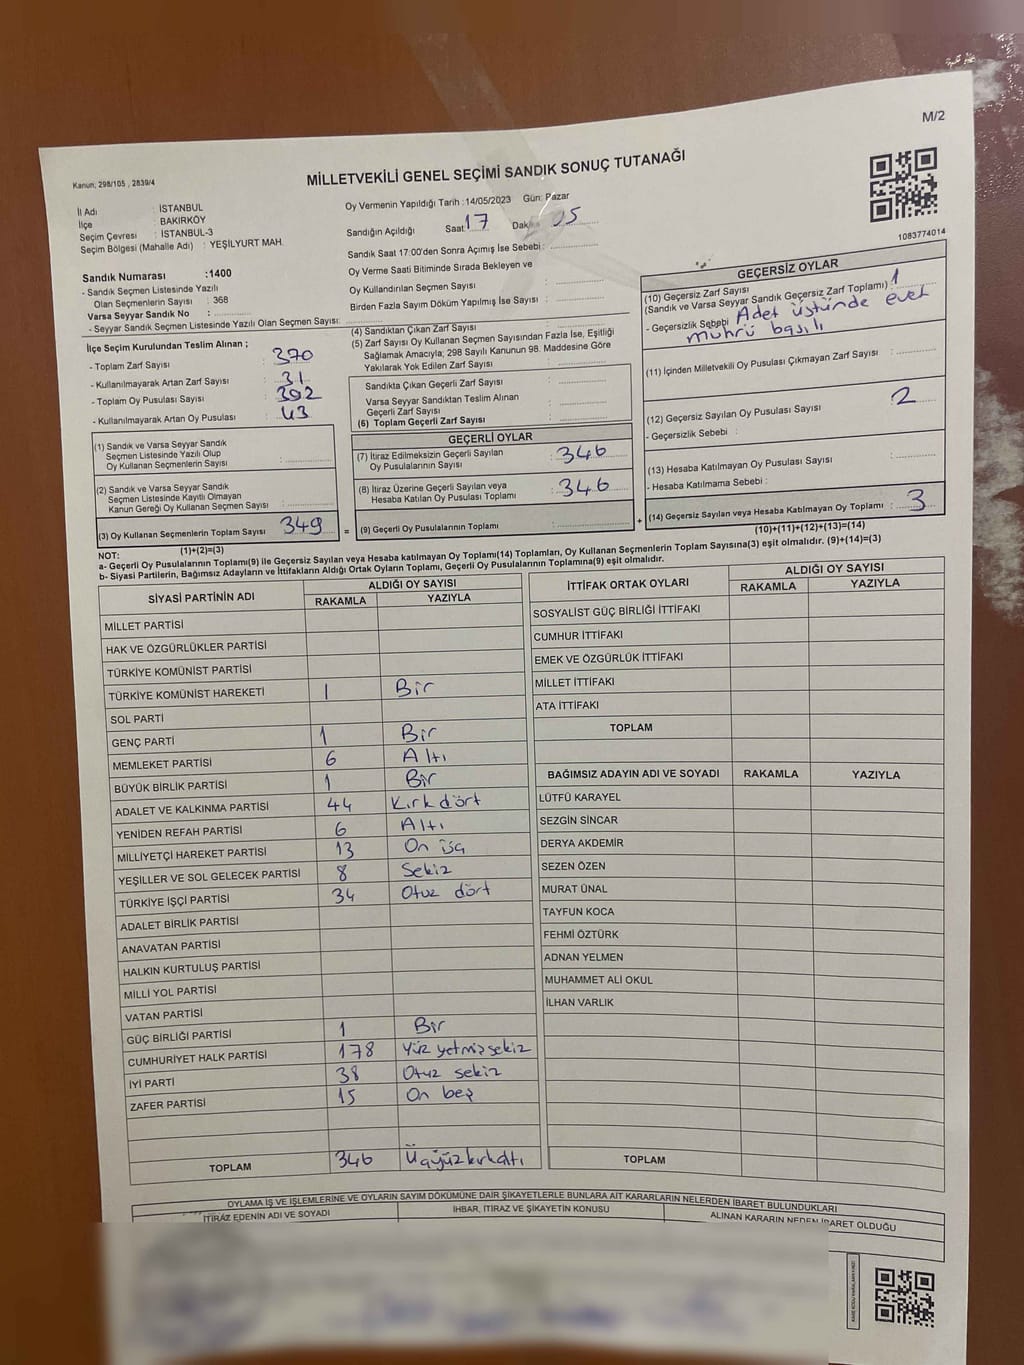 M/2
Kanun, 298/105 , 2839/4
MİLLETVEKİLİ GENEL SEÇİMİ SANDIK SONUÇ TUTANAĞI
1083774014
İl Adı : İSTANBUL
İlçe : BAKIRKÖY
Seçim Çevresi : İSTANBUL-3
Seçim Bölgesi (Mahalle Adı) : YEŞİLYURT MAH.
Sandık Numarası :1400
- Sandık Seçmen Listesinde Yazılı
Olan Seçmenlerin Sayısı : 368
Varsa Seyyar Sandık No :
- Seyyar Sandık Seçmen Listesinde Yazılı Olan Seçmen Sayısı:
Oy Vermenin Yapıldığı Tarih :14/05/2023 Gün: Pazar
Sandığın Açıldığı Saat 17 Dakika 05
Sandık Saat 17:00'den Sonra Açımış İse Sebebi :
Oy Verme Saati Bitiminde Sırada Bekleyen ve
Oy Kullandırılan Seçmen Sayısı :
Birden Fazla Sayım Döküm Yapılmış İse Sayısı :
İlçe Seçim Kurulundan Teslim Alınan ;
- Toplam Zarf Sayısı : 370
- Kullanılmayarak Artan Zarf Sayısı : 31
- Toplam Oy Pusulası Sayısı : 392
- Kullanılmayarak Artan Oy Pusulası : 43
(1) Sandık ve Varsa Seyyar Sandık
Seçmen Listesinde Yazılı Olup
Oy Kullanan Seçmenlerin Sayısı :
(2) Sandık ve Varsa Seyyar Sandık
Seçmen Listesinde Kayıtlı Olmayan
Kanun Gereği Oy Kullanan Seçmen Sayısı :
(3) Oy Kullanan Seçmenlerin Toplam Sayısı : 349
(1)+(2)=(3)
(4) Sandıktan Çıkan Zarf Sayısı :
(5) Zarf Sayısı Oy Kullanan Seçmen Sayısından Fazla İse, Eşitliği
Sağlamak Amacıyla; 298 Sayılı Kanunun 98. Maddesine Göre
Yakılarak Yok Edilen Zarf Sayısı :
Sandıkta Çıkan Geçerli Zarf Sayısı :
Varsa Seyyar Sandıktan Teslim Alınan
Geçerli Zarf Sayısı :
(6) Toplam Geçerli Zarf Sayısı :
GEÇERLİ OYLAR
(7) İtiraz Edilmeksizin Geçerli Sayılan
Oy Pusulalarının Sayısı : 346
(8) İtiraz Üzerine Geçerli Sayılan veya
Hesaba Katılan Oy Pusulası Toplamı : 346
= (9) Geçerli Oy Pusulalarının Toplamı :
GEÇERSİZ OYLAR
(10) Geçersiz Zarf Sayısı
(Sandık ve Varsa Seyyar Sandık Geçersiz Zarf Toplamı) : 1
- Geçersizlik Sebebi : Adet üstünde evet
mührü basılı
(11) İçinden Milletvekili Oy Pusulası Çıkmayan Zarf Sayısı :
(12) Geçersiz Sayılan Oy Pusulası Sayısı : 2
- Geçersizlik Sebebi :
(13) Hesaba Katılmayan Oy Pusulası Sayısı :
- Hesaba Katılmama Sebebi :
+ (14) Geçersiz Sayılan veya Hesaba Katılmayan Oy Toplamı : 3
(10)+(11)+(12)+(13)=(14)
NOT:
a- Geçerli Oy Pusulalarının Toplamı(9) ile Geçersiz Sayılan veya Hesaba katılmayan Oy Toplamı(14) Toplamları, Oy Kullanan Seçmenlerin Toplam Sayısına(3) eşit olmalıdır. (9)+(14)=(3)
b- Siyasi Partilerin, Bağımsız Adayların ve İttifakların Aldığı Ortak Oyların Toplamı, Geçerli Oy Pusulalarının Toplamına(9) eşit olmalıdır.
SİYASİ PARTİNİN ADI ALDIĞI OY SAYISI
RAKAMLA YAZIYLA
MİLLET PARTİSİ
HAK VE ÖZGÜRLÜKLER PARTİSİ
TÜRKİYE KOMÜNİST PARTİSİ
TÜRKİYE KOMÜNİST HAREKETİ 1 Bir
SOL PARTİ
GENÇ PARTİ 1 Bir
MEMLEKET PARTİSİ 6 Altı
BÜYÜK BİRLİK PARTİSİ 1 Bir
ADALET VE KALKINMA PARTİSİ 44 Kırk dört
YENİDEN REFAH PARTİSİ 6 Altı
MİLLİYETÇİ HAREKET PARTİSİ 13 On üç
YEŞİLLER VE SOL GELECEK PARTİSİ 8 Sekiz
TÜRKİYE İŞÇİ PARTİSİ 34 Otuz dört
ADALET BİRLİK PARTİSİ
ANAVATAN PARTİSİ
HALKIN KURTULUŞ PARTİSİ
MİLLİ YOL PARTİSİ
VATAN PARTİSİ
GÜÇ BİRLİĞİ PARTİSİ 1 Bir
CUMHURİYET HALK PARTİSİ 178 Yüz yetmiş sekiz
İYİ PARTİ 38 Otuz sekiz
ZAFER PARTİSİ 15 On beş
TOPLAM 346 Üçyüzkırkaltı
İTTİFAK ORTAK OYLARI ALDIĞI OY SAYISI
RAKAMLA YAZIYLA
SOSYALİST GÜÇ BİRLİĞİ İTTİFAKI
CUMHUR İTTİFAKI
EMEK VE ÖZGÜRLÜK İTTİFAKI
MİLLET İTTİFAKI
ATA İTTİFAKI
TOPLAM
BAĞIMSIZ ADAYIN ADI VE SOYADI RAKAMLA YAZIYLA
LÜTFÜ KARAYEL
SEZGİN SİNCAR
DERYA AKDEMİR
SEZEN ÖZEN
MURAT ÜNAL
TAYFUN KOCA
FEHMİ ÖZTÜRK
ADNAN YELMEN
MUHAMMET ALİ OKUL
İLHAN VARLIK
TOPLAM
OYLAMA İŞ VE İŞLEMLERİNE VE OYLARIN SAYIM DÖKÜMÜNE DAİR ŞİKAYETLERLE BUNLARA AİT KARARLARIN NELERDEN İBARET BULUNDUKLARI
İTİRAZ EDENİN ADI VE SOYADI İHBAR, İTİRAZ VE ŞİKAYETİN KONUSU ALINAN KARARIN NEDEN İBARET OLDUĞU